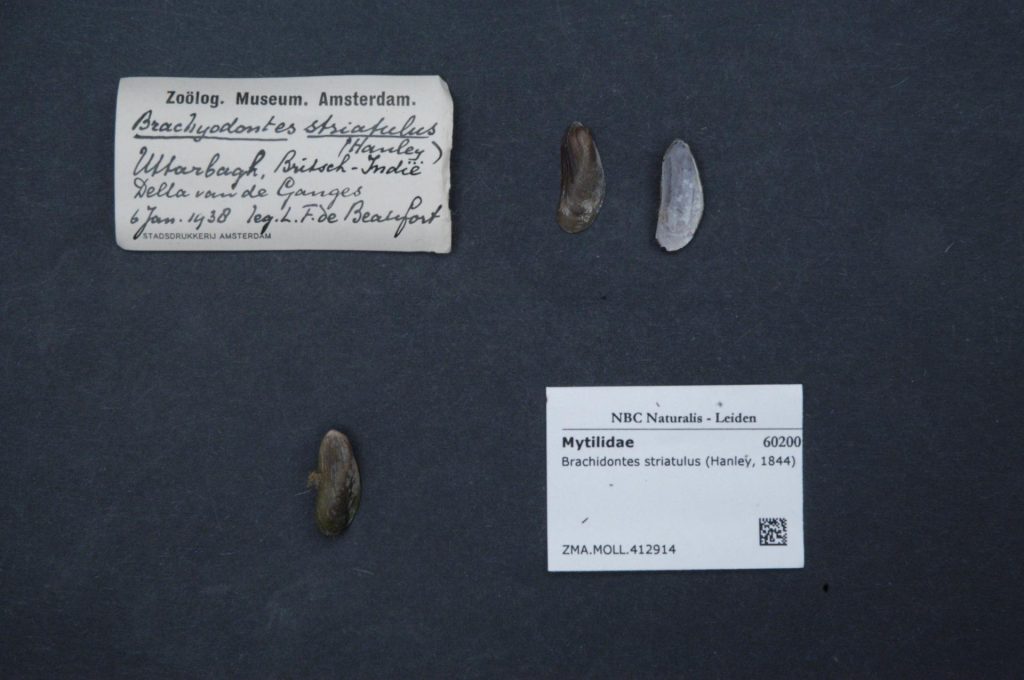 Zoölog. Museum. Amsterdam.
Brachyodontes striatulus
(Hanley)
Uttarbagh, Britsch-Indië
Delta van de Ganges
6 Jan. 1938 leg. L. F. de Beaufort
STADSDRUKKERIJ AMSTERDAM
NBC Naturalis - Leiden
Mytilidae 60200
Brachidontes striatulus (Hanley, 1844)
ZMA.MOLL.412914